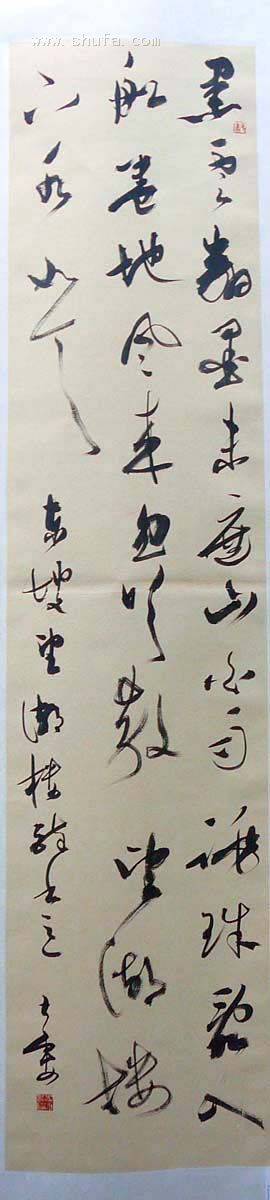 www.shufa.com
黑雲翻墨未遮山白雨跳珠亂入
船卷地风来忽吹散望湖楼
下水如天
东坡望湖楼醉书